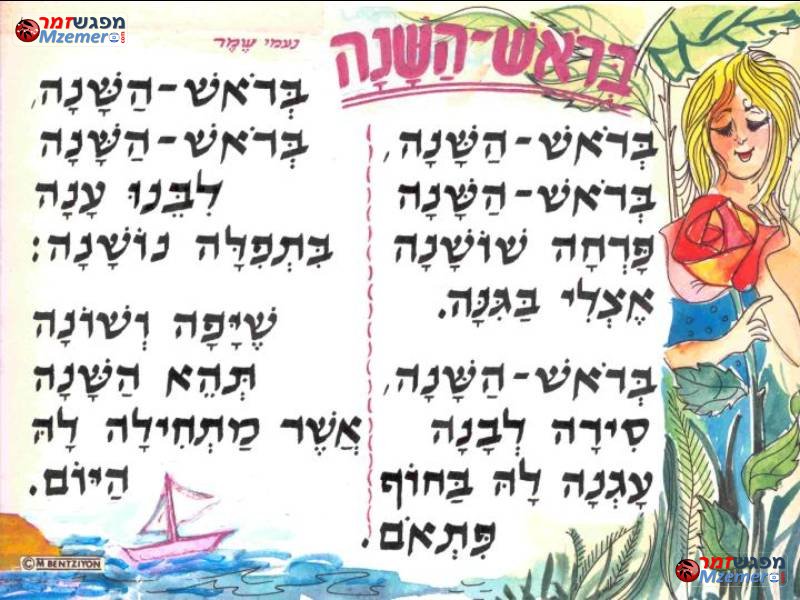 מפגשזמר
Mzemer.com
בְּרֹאשׁ-הַשָּׁנָה
נעמי שֶׁמֶר
בְּרֹאשׁ-הַשָּׁנָה,
בְּרֹאשׁ-הַשָּׁנָה
פָּרְחָה שׁוֹשַׁנָּה
אֶצְלִי בַּגִּנָּה.
בְּרֹאשׁ-הַשָּׁנָה,
סִירָה לְבָנָה
עָגְנָה לָהּ בַּחוֹף
פִּתְאֹם.
בְּרֹאשׁ-הַשָּׁנָה,
בְּרֹאשׁ-הַשָּׁנָה
לִבֵּנוּ עָנָה
בִּתְפִלָּה נוֹשָׁנָה:
שֶׁיָּפָה וְשׁוֹנָה
תְּהֵא הַשָּׁנָה
אֲשֶׁר מַתְחִילָה לָהּ
הַיּוֹם.
© M BENTZIYON
מפגשזמר
Mzemer.com